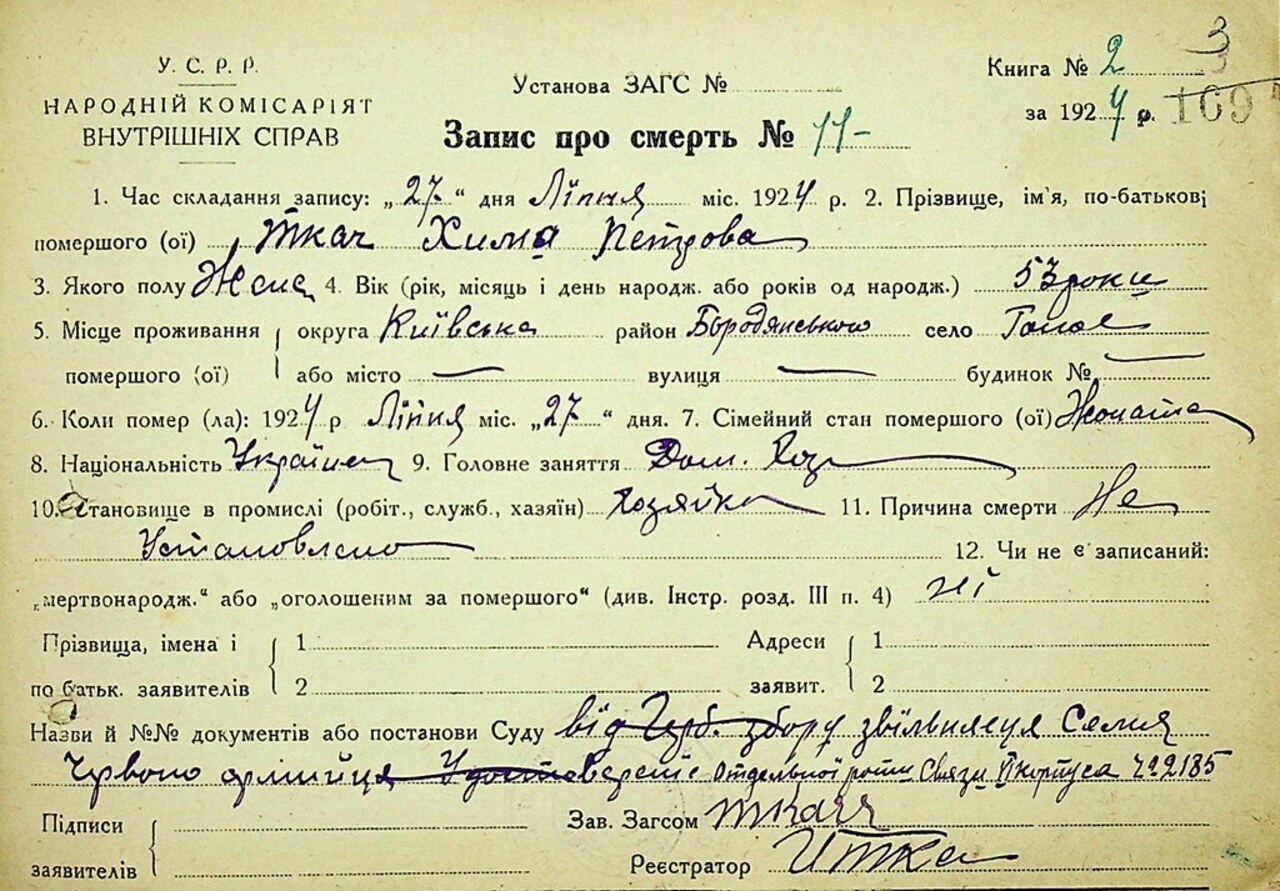 У. С. Р. Р.
НАРОДНІЙ КОМІСАРІЯТ
ВНУТРІШНІХ СПРАВ
Установа ЗАГС №
Запис про смерть № 11-
Книга № 2 3
за 1924 р. 169
1. Час складання запису: „27“ дня Липня міс. 1924 р. 2. Прізвище, ім'я, по-батькові
помершого (ої) Ткач Хима Петрова
3. Якого полу Жен 4. Вік (рік, місяць і день народж. або років од народж.) 53 роки
5. Місце проживання округа Київська район Бородянського село
помершого (ої) або місто — вулиця — будинок № —
6. Коли помер (ла): 1924 р Липня міс. „27“ дня. 7. Сімейний стан помершого (ої) Жоната
8. Національність Україн 9. Головне заняття Дом. Хоз
10. Становище в промислі (робіт., служб., хазяїн) Хозяйка 11. Причина смерти Не
Установлено 12. Чи не є записаний:
„мертвонародж.“ або „оголошеним за помершого“ (див. Інстр. розд. III п. 4) ні
Прізвища, імена і 1 Адреси 1
по батьк. заявителів 2 заявит. 2
Назви й №№ документів або постанови Суду від Герб. збору звільниця Семия
Червоно армійця Удостоверение Отдельної роти Связи VI корпуса №2185
Підписи Зав. Загсом Ткач
заявителів Реєстратор